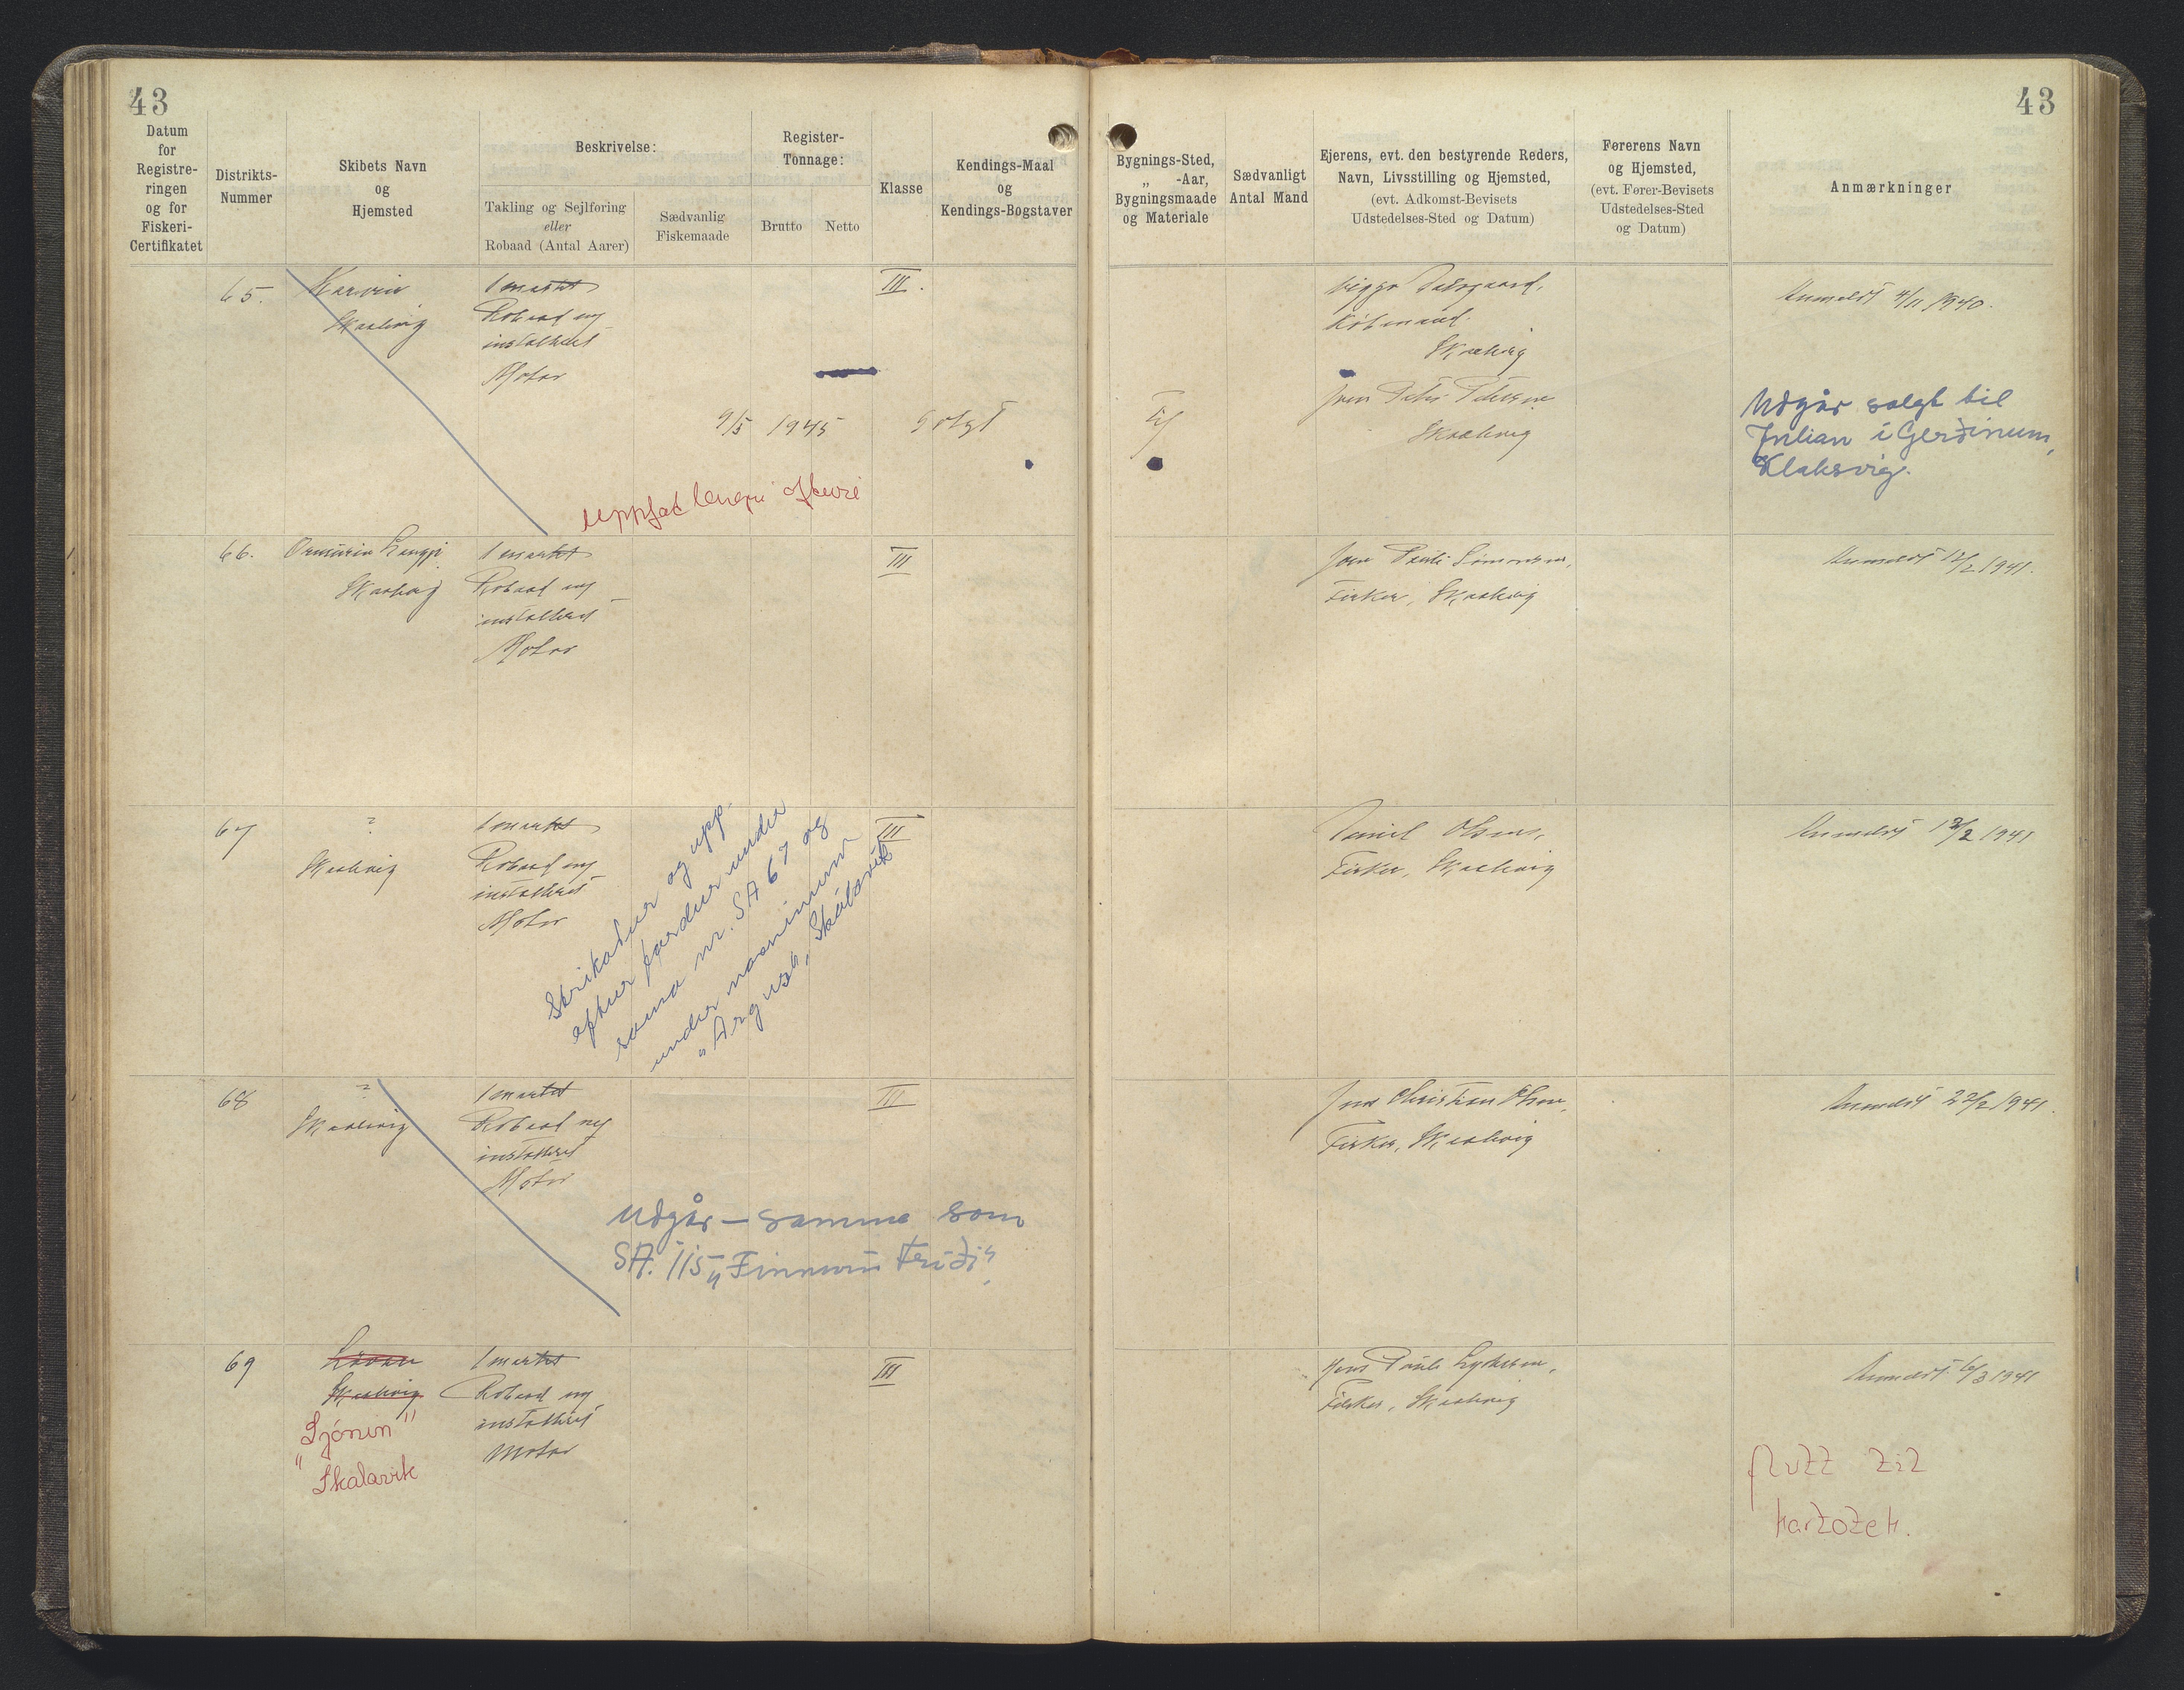 43
43
Datum
for
Registre-
ringen
og for
Fiskeri-
Certifikatet
Distrikts-
Nummer
Skibets Navn
og
Hjemsted
Beskrivelse:
Takling og Sejlføring
eller
Robaad (Antal Aarer)
Sædvanlig
Fiskemaade
Register-
Tonnage:
Brutto
Netto
Klasse
Kendings-Maal
og
Kendings-Bogstaver
Bygnings-Sted,
„ -Aar,
Bygningsmaade
og Materiale
Sædvanligt
Antal Mand
Ejerens, evt. den bestyrende Reders,
Navn, Livsstilling og Hjemsted,
(evt. Adkomst-Bevisets
Udstedelses-Sted og Datum)
Førerens Navn
og Hjemsted,
(evt. Fører-Bevisets
Udstedelses-Sted
og Datum)
Anmærkninger
65.
Skaalvig
1 mastet
Robaad m/
installeret
Motor
III.
Viggo
Købmand.
Skaalvig
Anmeldt 4/11 1940.
9/5 1945
Solgt
til
Jens Peter Petersen
Skaalvig
Udgår solgt til
Julian í Gerðinum,
Klaksvig.
uppsat
66.
Ormurin Langi
Skaalvig
1 mastet
Robaad m/
installeret
Motor
III
Joen Pauli Simonsen,
Fisker, Skaalvig
Anmeldt 12/2 1941.
67
?
Skaalvig
1 mastet
Robaad m/
installeret
Motor
III
Daniel Olsen,
Fisker, Skaalvig
Anmeldt 12/2 1941
Strikaður og upp-
aftur førdur undir
sama nr. SA 67 og
undir navninum
„Argus“, Skálavík
68
?
Skaalvig
1 mastet
Robaad m/
installeret
Motor
III
Jens Christian Olsen,
Fisker, Skaalvig
Anmeldt 22/2 1941.
Udgår – samme som
SA. 115 „Finnurin Fríði“.
69
Skaalvig
"Ljómin"
Skálavík
1 mastet
Robaad m/
installeret
Motor
III
Jens Pauli
Fisker, Skaalvig
Anmeldt 6/3 1941
flutt til
kartotek.